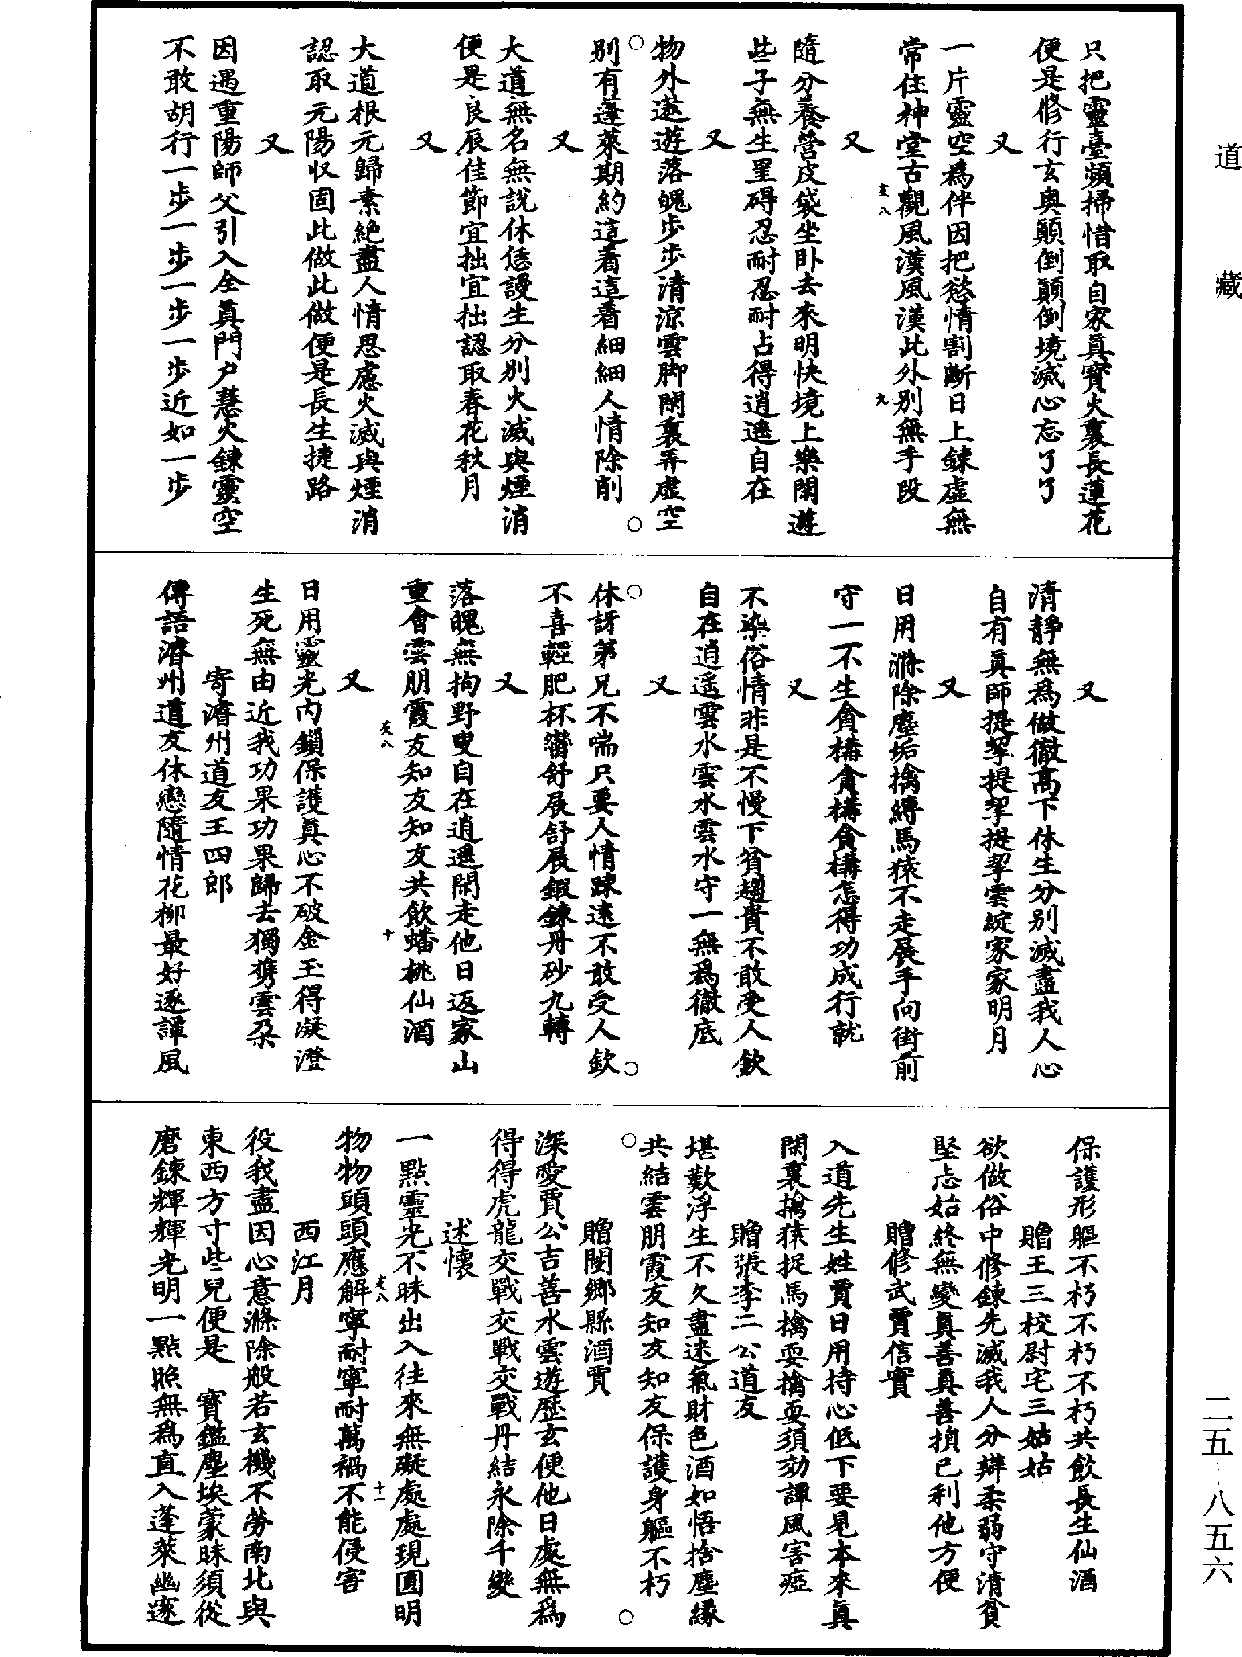 道藏
只把靈臺頻掃惜取自家真寶火裏長蓮花
便是修行玄奧顛倒顛倒境滅心忘了了
又
一片靈空爲伴因把慾情割斷日上鍊虛無
常住神堂古觀風漢風漢此外別無手段
又
隨分養營皮袋坐卧去來明快境上樂閑遊
些子無生罣碍忍耐忍耐占得逍遙自在
又
物外遨遊落魄步步清涼雲脚閑裏弄虛空
別有蓬萊期約這着這着細細人情除削
又
大道無名無說休恁謾生分別火滅與煙消
便是良辰佳節宜拙宜拙認取春花秋月
又
大道根元歸素絶盡人情思慮火滅與煙消
認取元陽收固此做此做便是長生捷路
又
因遇重陽師父引入全真門户慧火鍊靈空
不敢胡行一步一步一步一步近如一步
又
清靜無爲做徹高下休生分別滅盡我人心
自有真師提挈提挈提挈雲綻家家明月
又
日用滌除塵垢擒縛馬猿不走展手向街前
守一不生貪搆貪搆貪搆怎得功成行就
又
不染俗情非是不慢下貧趨貴不敢受人欽
自在逍遥雲水雲水雲水守一無爲徹底
又
休訝第兄不喘只要人情踈遠不敢受人欽
不喜輕肥杯臠舒展舒展鍜鍊丹砂九轉
又
落魄無拘野叟自在逍遥閑走他日返家山
重會雲朋霞友知友知友共飲蟠桃仙酒
又
日用靈光内鎖保護真心不破金玉得凝澄
生死無由近我功果功果歸去獨攜雲朶
寄濬州道友王四郎
傳語濬州道友休戀隨情花柳最好逐譚風
保護形軀不朽不朽不朽共飲長生仙酒
贈王三校尉宅三姑姑
欲做俗中修鍊先滅我人分辯柔弱守清貧
堅志始終無變真善真善損已利他方便
贈修武賈信實
入道先生姓賈日用持心低下要見本來真
閑裏擒猿捉馬擒耍擒耍須効譚風害瘂
贈張李二公道友
堪歎浮生不久盡迷氣財色酒如悟捨塵緣
共結雲朋霞友知友知友保護身軀不朽
贈閿鄉縣酒賈
深愛賈公吉善水雲遊歷玄便他日處無爲
得得虎龍交戰交戰交戰丹結永除千變
述懷
一點靈光不昧出入往來無礙處處現圓明
物物頭頭應解寧耐寧耐萬禍不能侵害
西江月
役我盡因心意滌除般若玄機不勞南北與
東西方寸些兒便是　寶鑑塵埃蒙昧須從
磨鍊輝輝光明一點照無爲直入蓬萊幽邃
二五·八五六